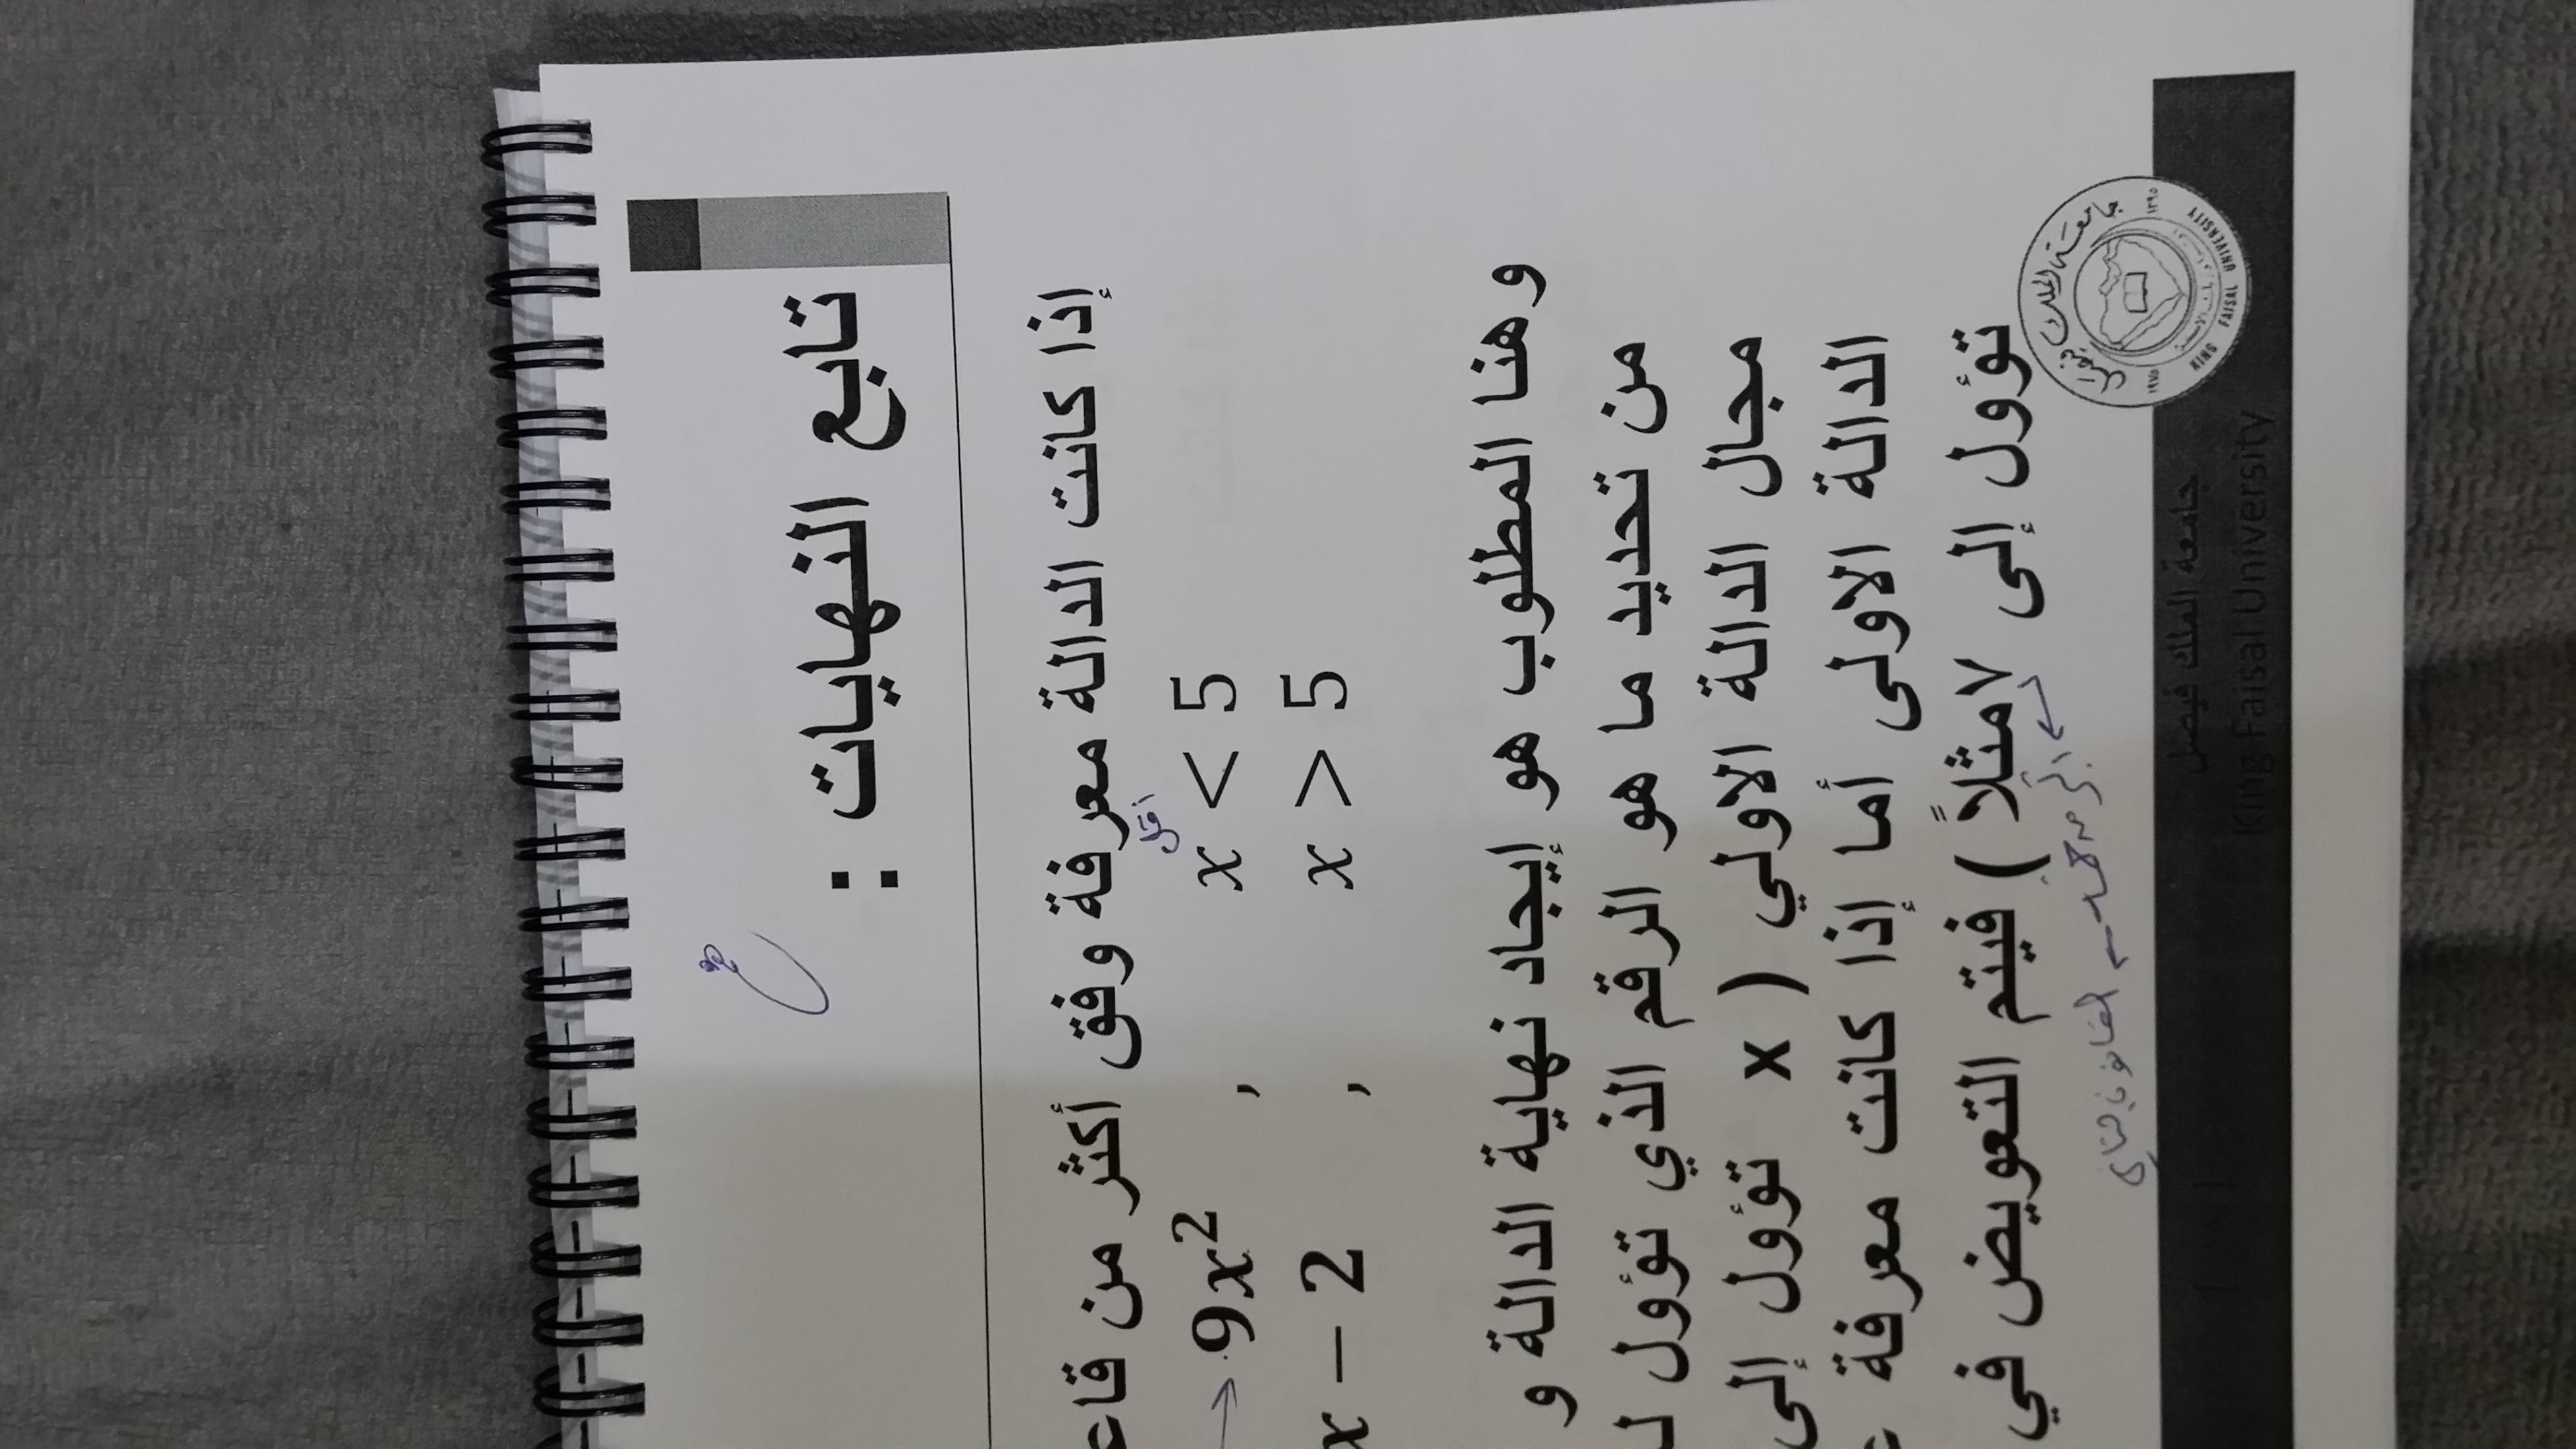 تابع النهايات :
إذا كانت الدالة معرفة وفق أكثر من
أقل
9x² , x < 5
x − 2 , x > 5
وهنا المطلوب هو إيجاد نهاية الدالة و
من تحديد ما هو الرقم الذي تؤول
مجال الدالة الاولي ( x تؤول إلى
الدالة الاولى أما إذا كانت معرفة
تؤول إلى ٧مثلاً ) فيتم التعويض في
جامعة الملك فيصل
King Faisal University
جامعة الملك فيصل
KING FAISAL UNIVERSITY
١٣٩٥
١٩٧٥